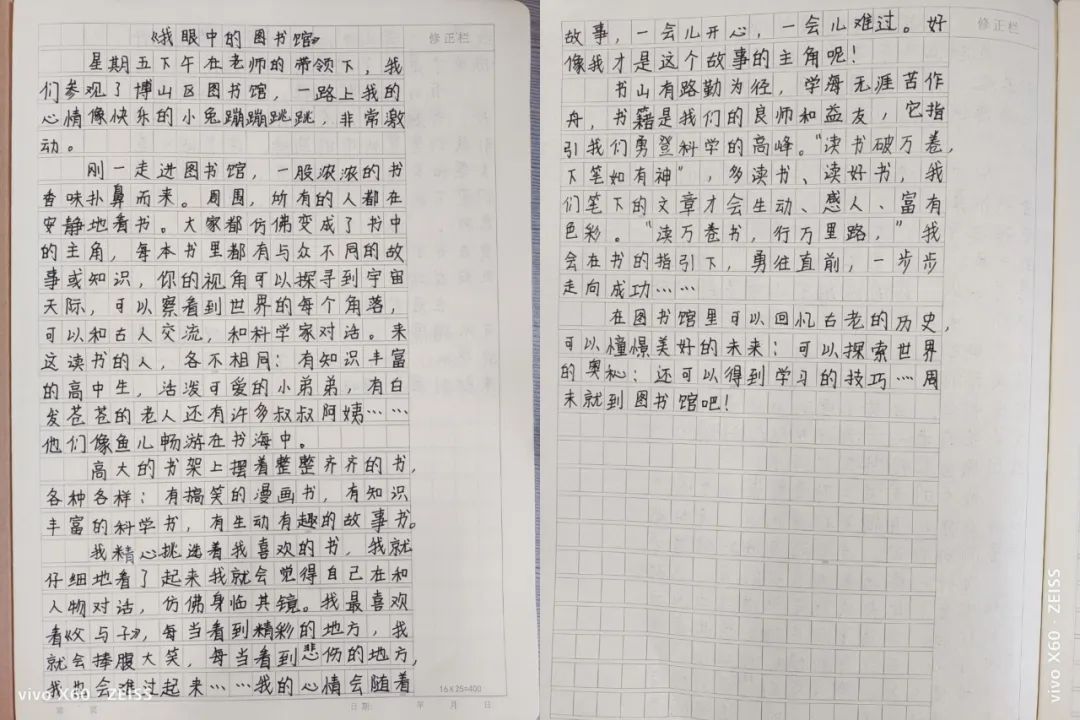 《我眼中的图书馆》
修正栏
星期五下午在老师的带领下，我
们参观了博山区图书馆，一路上我的
心情像快乐的小兔蹦蹦跳跳，非常激
动。
刚一走进图书馆，一股浓浓的书
香味扑鼻而来。周围，所有的人都在
安静地看书。大家都仿佛变成了书中
的主角，每本书里都有与众不同的故
事或知识，你的视角可以探寻到宇宙
天际，可以察看到世界的每个角落，
可以和古人交流，和科学家对话。来
这读书的人，各不相同：有知识丰富
的高中生，活泼可爱的小弟弟，有白
发苍苍的老人还有许多叔叔阿姨……
他们像鱼儿畅游在书海中。
高大的书架上摆着整整齐齐的书，
各种各样：有搞笑的漫画书，有知识
丰富的科学书，有生动有趣的故事书。
我精心挑选着我喜欢的书，我就
仔细地看了起来我就会觉得自己在和
人物对话，仿佛身临其镜。我最喜欢
看《父与子》，每当看到精彩的地方，我
就会捧腹大笑，每当看到悲伤的地方，
我也会难过起来……我的心情会随着
16X25=400
日期： 年 月 日
vivo X60 · ZEISS
修正栏
故事，一会儿开心，一会儿难过。好
像我才是这个故事的主角呢！
书山有路勤为径，学海无涯苦作
舟，书籍是我们的良师和益友，它指
引我们勇登科学的高峰。“读书破万卷，
下笔如有神”，多读书、读好书，我
们笔下的文章才会生动、感人、富有
色彩。“读万卷书，行万里路，”我
会在书的指引下，勇往直前，一步步
走向成功……
在图书馆里可以回忆古老的历史，
可以憧憬美好的未来；可以探索世界
的奥秘；还可以得到学习的技巧…周
末就到图书馆吧！
vivo X60 · ZEISS